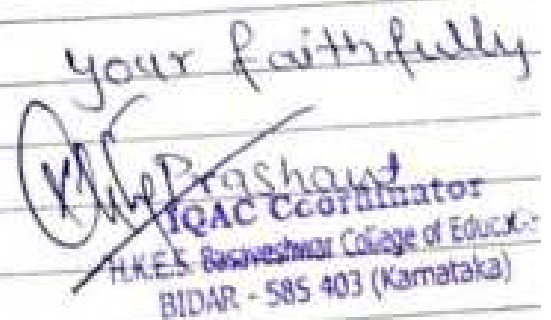 your faithfully
Prashant
IQAC Coordinator
H.K.E.S. Basaveshwar College of Educa
BIDAR - 585 403 (Karnataka)